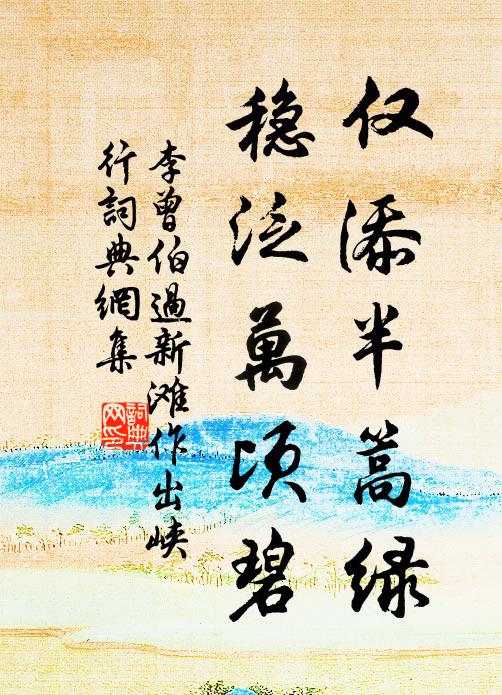 仅添半篙绿
稳泛萬顷碧
李曾伯過新滩作出峡
行詞典網集